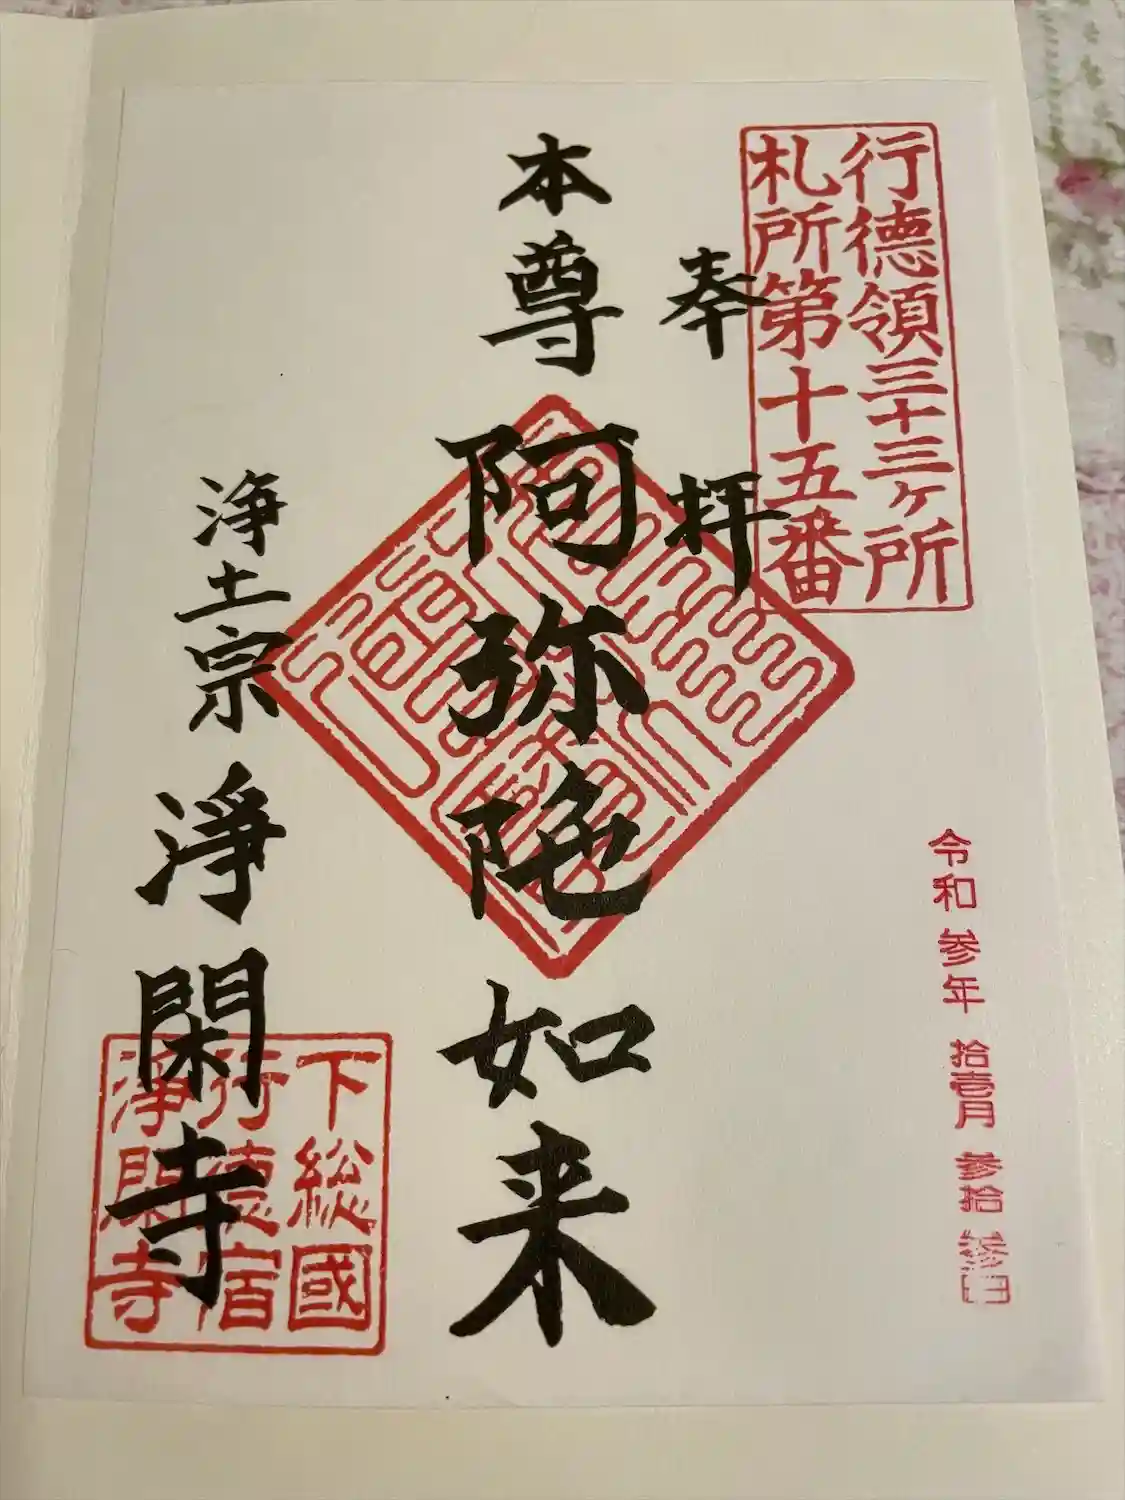 行德領三十三ヶ所
札所第十五番
奉拝
令和参年拾壱月参拾
本尊阿弥陀如来
浄土宗淨閑寺
下総國
行徳宿
淨閑寺